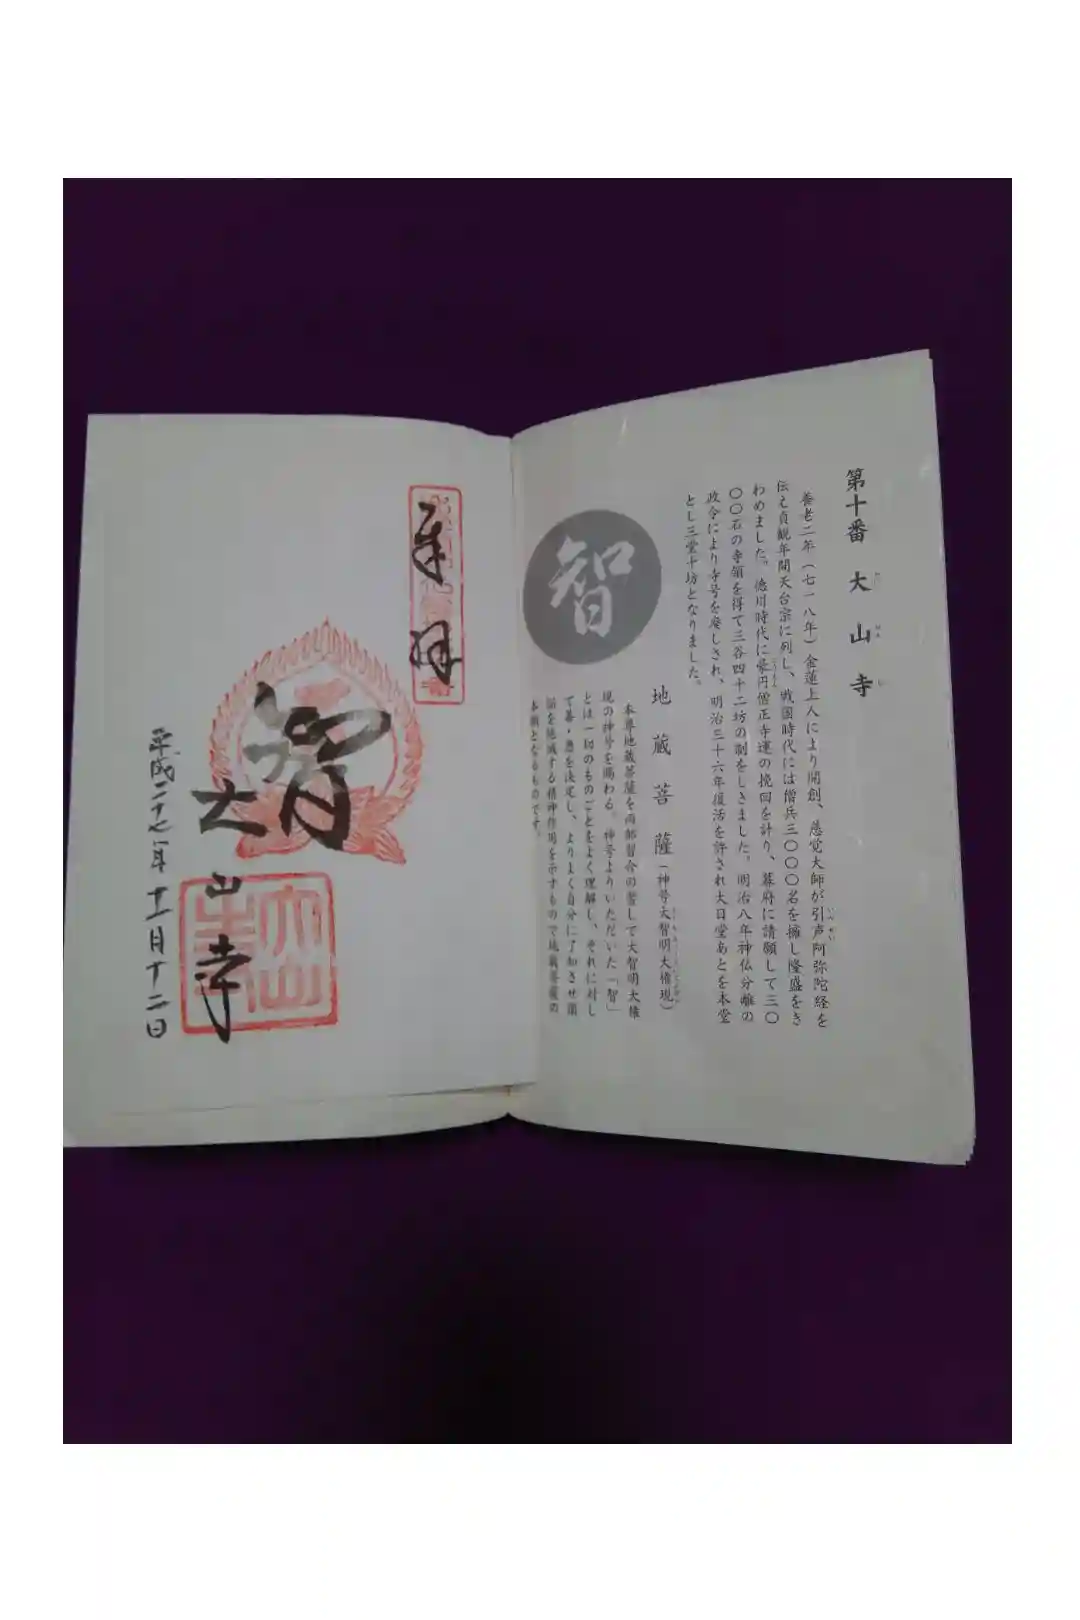 第十番 大山寺
養老二年(七一八年)金蓮上人により開創、慈覚大師が引声阿弥陀経を
伝え貞観年間天台宗に列し、戦国時代には僧兵三〇〇〇名を擁し隆盛をき
わめました。徳川時代に豪円僧正寺運の挽回を計り、幕府に請願して三〇
〇〇石の寺領を得て三谷四十二坊の制をしきました。明治八年神仏分離の
政令により寺号を廃しされ、明治三十六年復活を許され大日堂あとを本堂
とし三堂十坊となりました。
智
地蔵菩薩(神号大智明大権現)
本尊地蔵菩薩を両部習合の習して大智明大権
現の神号を賜わる。神号よりいただいた「智」
とは一切のものごとをよく理解し、それに対し
て善・悪を決定し、よりよく自分に了知させ煩
悩を絶滅する精神作用を示すもので地蔵菩薩の
本願となるものです。
奉拝
智
大山寺
平成二十七年十一月十二日